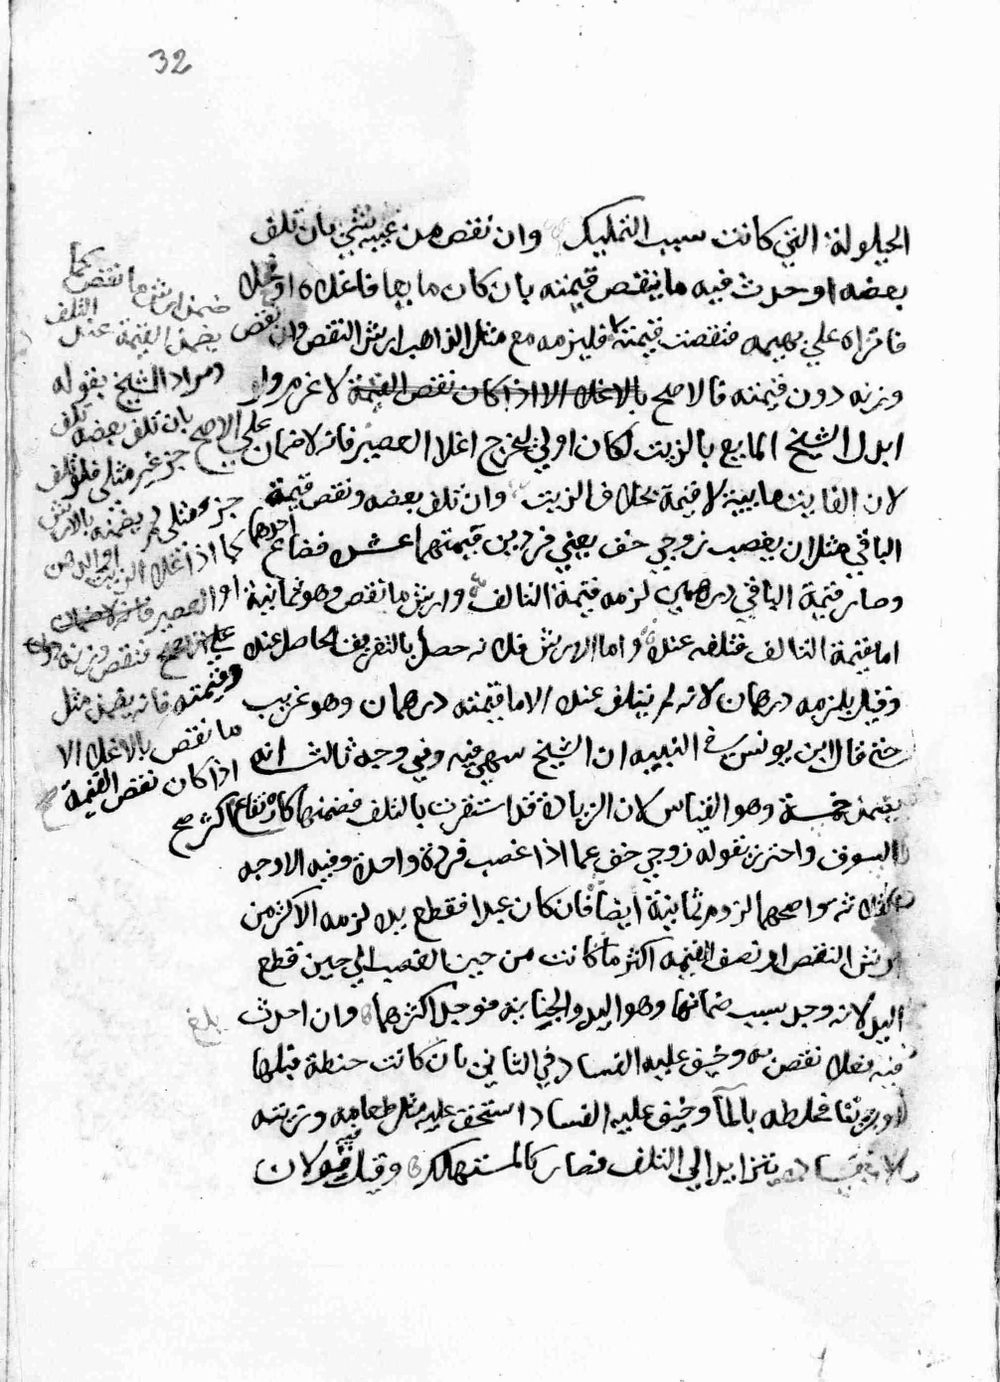 32
الحيلولة التي كانت سبب التمليك وان نقص من عينه شي بان تلف
بعضه او حدث فيه ما ينقص قيمته بان كان مايعا فاغلاه او فحلا
فانزاه علي بهيمه فنقصت قيمته فليزمه مع مثل الذاهب ارش النقص وان نقص
وزنه دون قيمته فالاصح بالاغلا الا اذا كان نقص القيمة لا غرم ولو
ابدل الشيخ المايع بالزيت لكان اولي ليخرج اغلا العصير فانه لا ضمان
لان الفايت مايية لا قيمة بخلاف الزيت وان تلف بعضه ونقص قيمة
الباقي مثل ان يغصب زوجي خف يعني فردين قيمتهما عشرة فضاع احدهما
وصار قيمة الباقي درهمين لزمه قيمة التالف وارش ما نقص وهو ثمانية
اما قيمة التالف فتلفه عنده واما الارش فلانه حصل بالتفريق الحاصل عنده
وقيل يلزمه درهمان لانه لم يتلف عنده الا ما قيمته درهمان وهو غريب
حتى قال ابن يونس في التنبيه ان الشيخ سهي فيه وفي وجه ثالث انه
يضمن خمسة وهو القياس لان الزيادة قد استقرت بالتلف فضمنها كارتفاع
السوق واحترز بقوله زوجي خف عما اذا غصب فردة واحدة وفيه الاوجه
الثلاثة واصحهما لزوم ثمانية ايضا فان كان عبدا فقطع يده لزمه الاكثر من
ارش النقص او نصف القيمه اكثر ما كانت من حين الغصب الي حين قطع
اليد لانه وجد سبب ضمانها وهو اليد والجناية فوجد اكثرهما وان احدث
فيه فعلا نقص به وخيف عليه الفساد في الثاني بان كانت حنطة فبلها
او زيتا فخلطه بالمآ وخيف عليه الفساد استحق عليه مثل طعامه وزيته
لانه يتزايد الي التلف فصار كالمستهلك وقيل فيه قولان
كما
ضمن ارش ما نقص
يضمن القيمة عند التلف
ومراد الشيخ بقوله
بان تلف بعضه تلف
جزء غير مثلي فلو تلف
جزء مثلي لم يضمنه بالارش
كما اذا غلا الزيت او الدهن
او العصير فانه لا ضمان
علي الاصح فنقص وزنه دون
وقيمته فانه يضمن مثل
ما نقص بالاغلا الا
اذا كان نقص القيمة
اكثر صح
علي الاصح
بلغ